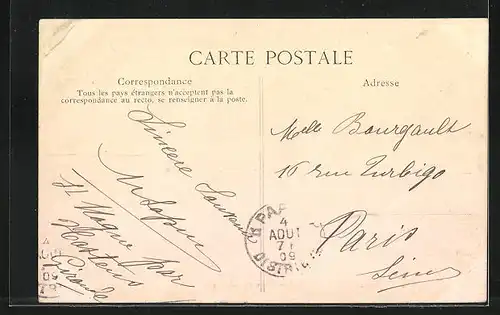 CARTE POSTALE
Correspondance
Tous les pays étrangers n'acceptent pas la
correspondance au recto, se renseigner à la poste.
Adresse
Sincère Souvenir
St Magne par
Castens
Gironde
Melle Bourgault
16 rue Turbigo
Paris
Seine
PAR
4
AOUT
71
09
DISTRI